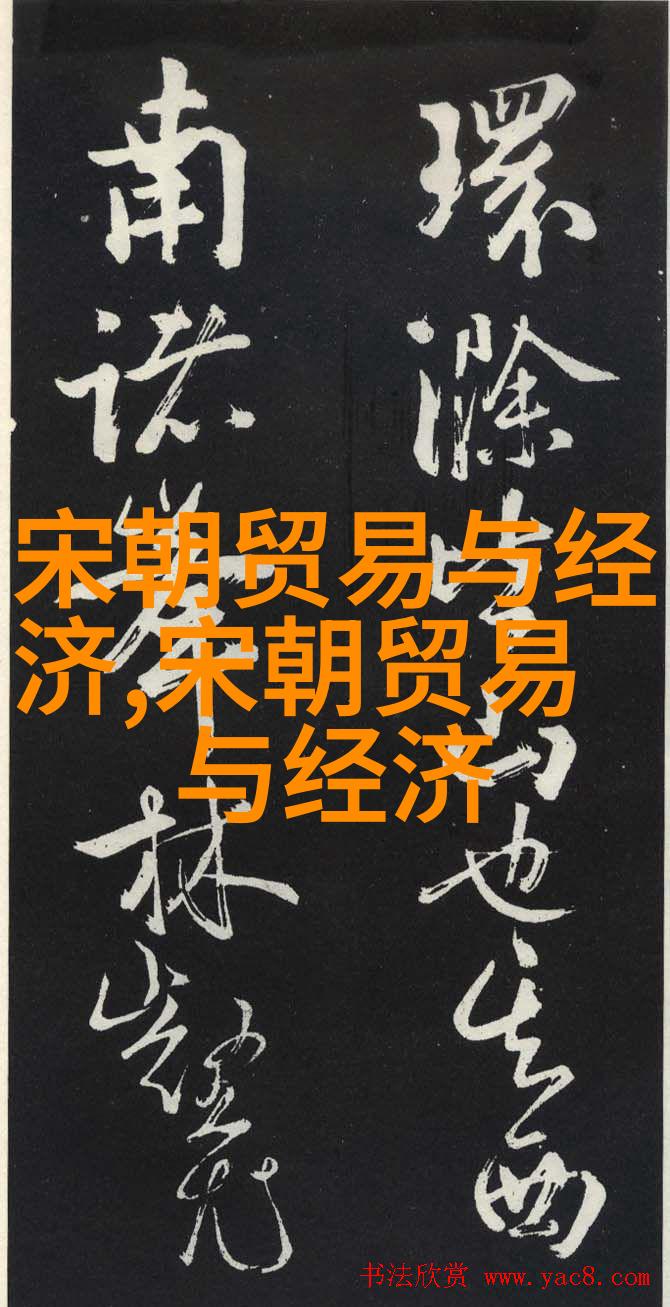 環滁皆山也其西
南諸峯林壑尤
宋朝贸易与经
济,宋朝贸易
与经济
书法欣赏 www.yac8.com